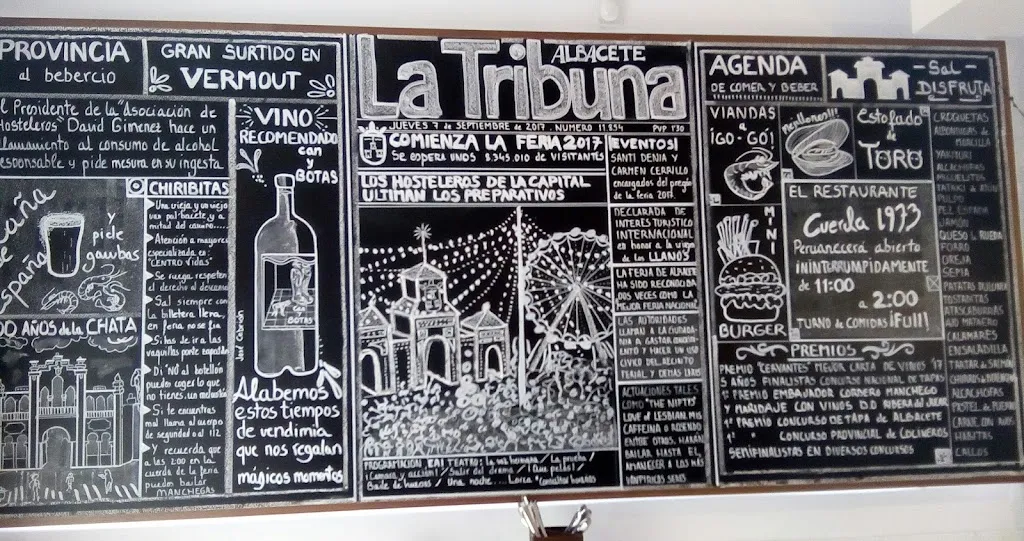 PROVINCIA
al bebercio
GRAN SURTIDO EN
VERMOUT
l Presidente de la "Asociación de
Hosteleros" David Gimenez hace un
llamamiento al consumo de alcohol
responsable y pide mesura en su ingesta
España
y
pide
gambas
00 AÑOS de la CHATA
CHIRIBITAS
Una vieja y un viejo
van pal bacete, y a
mitad del camino.....
Atención a mayores
especializada en:
"CENTRO VIDAS"
Se ruega respeten
el derecho al descanso
Sal siempre con
la billetera llena,
en feria no se fía
Si has de ir a las
vaquillas ponte zapatillas
Di NO al botellón
puedo coges lo que
no tienes, un
Si te encuentras
mal llama al cuerpo
de seguridad o al 112
Y recuerda que
a las 2:00 en la
cuerda de la feria
puedes bailar
MANCHEGAS
VINO
RECOMENDADO
can
y
BOTAS
CAN
BOTAS
José Cebrián
Alabemos
estos tiempos
de vendimia
que nos regalan
mágicos momentos
ALBACETE
La Tribuna
JUEVES 7 de SEPTIEMBRE de 2017 . NUMERO 11.854 PVP 1'30
COMIENZA LA FERIA 2017
Se espera unos 8.345.010 de VISITANTES
LOS HOSTELEROS DE LA CAPITAL
ULTIMAN LOS PREPARATIVOS
EVENTOS!
SANTI DENIA Y
CARMEN CERRILLO
encargados del pregón
de la feria 2017.
DECLARADA DE
INTERES TURISTICO
INTERNACIONAL
en honor a la virgen
de los LLANOS
LA FERIA DE ALBACETE
HA SIDO RECONOCIDA
DOS VECES COMO LA
MEJOR FERIA NACIONAL
LAS AUTORIDADES
LLAMAN A LA CIUDADA-
NIA A GASTAR CONOCIMI-
ENTO Y HACER UN USO
CIVICO DEL RECINTO
FERIAL Y DEMAS LARES
ACTUACIONES TALES
COMO "THE NIFTYS"
LOVE of LESBIAN, MIS
CAFFEINA O ROZENDO
ENTRE OTROS, HARAN
BAILAR HASTA EL
AMANECER A LOS MAS
VAMPIRICOS SERES
PROGRAMACION EN EL TEATRO: La vis hermana . La prueba /
¡Camara y acción! / Salir del drama / ¡Que pelos! /
Baile de huesos / Una noche... Lorca
AGENDA
DE COMER Y BEBER
Sal
DISFRUTA
VIANDAS
a
¡GO-GO!
mejillones!!
Estofado
de
TORO
MINI
BURGER
EL RESTAURANTE
Cuerda 1973
Permanecerá abierto
ININTERRUMPIDAMENTE
de 11:00
a 2:00
TURNO de COMIDAS ¡Full!
PREMIOS
PREMIO "CERVANTES" MEJOR CARTA DE VINOS '17
5 AÑOS FINALISTAS CONCURSO NACIONAL DE TAPAS
1º PREMIO EMBAJADOR CORDERO MANCHEGO
Y MARIDAJE CON VINOS D.O RIBERA del JUCAR
1º PREMIO CONCURSO DE TAPA DE ALBACETE
1º " CONCURSO PROVINCIAL DE COCINEROS
SEMIFINALISTAS EN DIVERSOS CONCURSOS
CROQUETAS
ALBONDIGAS DE
MORCILLA
YAKITORI
MIGUELITOS
TATAKI de ATUN
PULPO
PEZ ESPADA
JAMON
QUESO la RUEDA
FORRO
OREJA
SEPIA
PATATAS
TOSTADITAS
ATASCABURRAS
AJO MATAERO
CALAMARES
ENSALADILLA
TARTAR de SALMON
ALCACHOFAS
PASTEL de PUERRO
CARNE CON AJOS
HABITAS
CALLOS